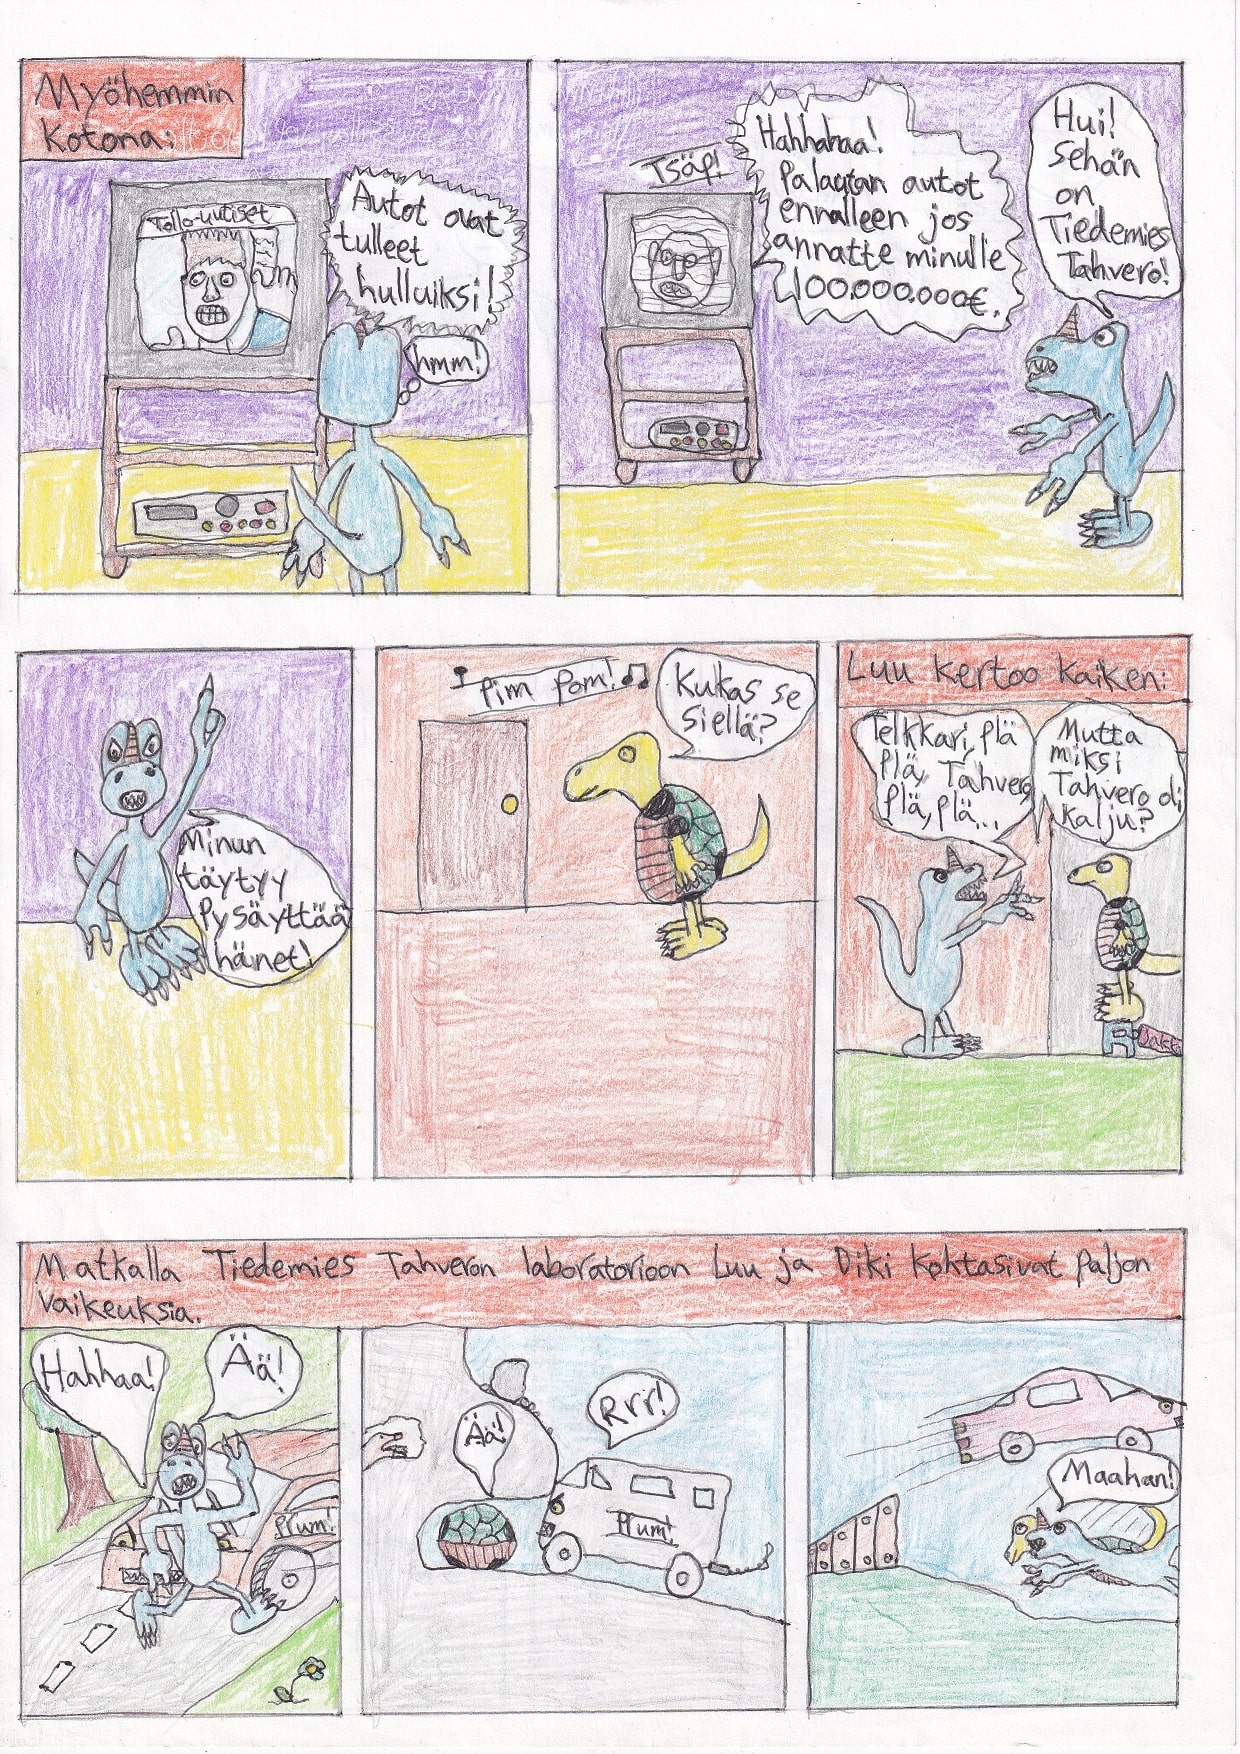 Myöhemmin
kotona:
Tollo-uutiset
Autot ovat
tulleet
hulluiksi!
hmm!
Tsäp!
Hahhahaa!
Palautan autot
ennalleen jos
annatte minulle
100.000.000€.
Hui!
Sehän
on
Tiedemies
Tahvero!
Minun
täytyy
Pysäyttää
hänet!
Pim Pom!
Kukas se
siellä?
Luu kertoo kaiken:
Telkkari, plä
plä, Tahvero
plä, plä...
Mutta
miksi
Tahvero oli
kalju?
Matkalla Tiedemies Tahveron laboratorioon Luu ja Diki kohtasivat paljon
vaikeuksia.
Hahhaa!
Ää!
Prum!
Ää!
Rrr!
Prum!
Maahan!